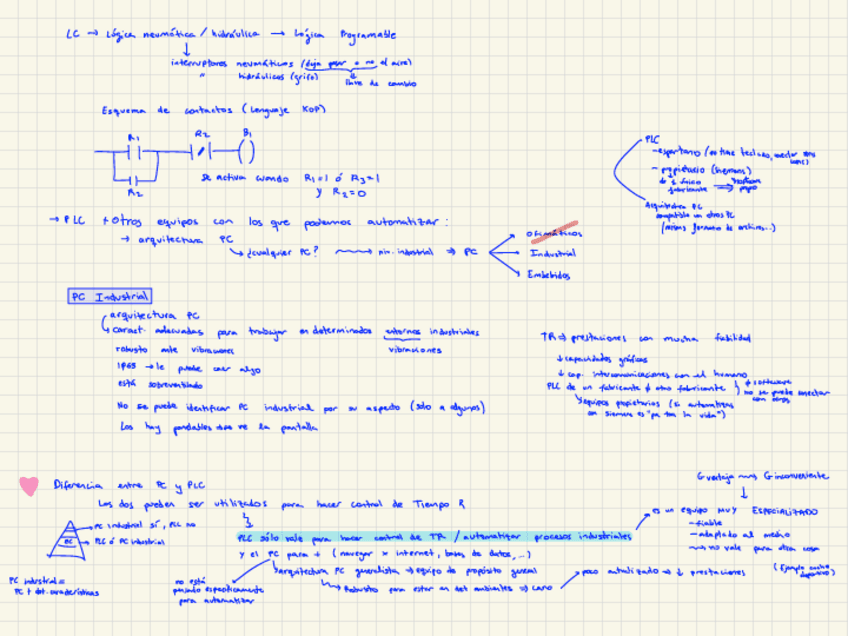 LC → Lógica neumática / hidráulica → Lógica Programable
interruptores neumáticos (deja pasar o no el aire)
" hidráulicos (grifo) llave de cambio
Esquema de contactos (Lenguaje KOP)
R1 R2 B1
R2
se activa cuando R1=1 ó R3=1
y R2=0
PLC
- espartano (no tiene teclado, conector
- propietario (Siemens)
de 1 único fabricante ⇒ software propio
Arquitectura PC
compatible con otros PC
(mismos formato de archivos...)
→ PLC + Otros equipos con los que podemos automatizar:
→ arquitectura PC
¿cualquier PC? niv. industrial ⇒ PC
Ofimáticos
Industrial
Embebidos
PC Industrial
arquitectura PC
caract. adecuadas para trabajar en determinados entornos industriales
robusto ante vibraciones vibraciones
IP65 → le puede caer algo
está sobreventilado
No se puede identificar PC industrial por su aspecto (solo a algunos)
Los hay portables se ve la pantalla
TR ⇒ prestaciones con mucha fiabilidad
↓ capacidades gráficas
↓ cap. intercomunicaciones con el humano
PLC de un fabricante ≠ otro fabricante ≠ software
no se puede conectar con otros
equipos propietarios (si automatizas
con siemens es "pa to la vida")
Diferencia entre PC y PLC
Los dos pueden ser utilizados para hacer control de Tiempo R
PC industrial sí, PLC no
PLC ó PC industrial
PC industrial =
PC + det. características
PLC sólo vale para hacer control de TR / automatizar procesos industriales
y el PC para + (navegar x internet, bases de datos, ...)
no está
pensado específicamente
para automatizar
arquitectura PC generalista → equipo de propósito general
Robustos para estar en det ambientes ⇒ caro
poco actualizado → ↓ prestaciones
G ventaja G inconveniente
es un equipo MUY ESPECIALIZADO
- fiable
- adaptado al medio
→ no vale para otra cosa
(Ejemplo coche
deportivo)